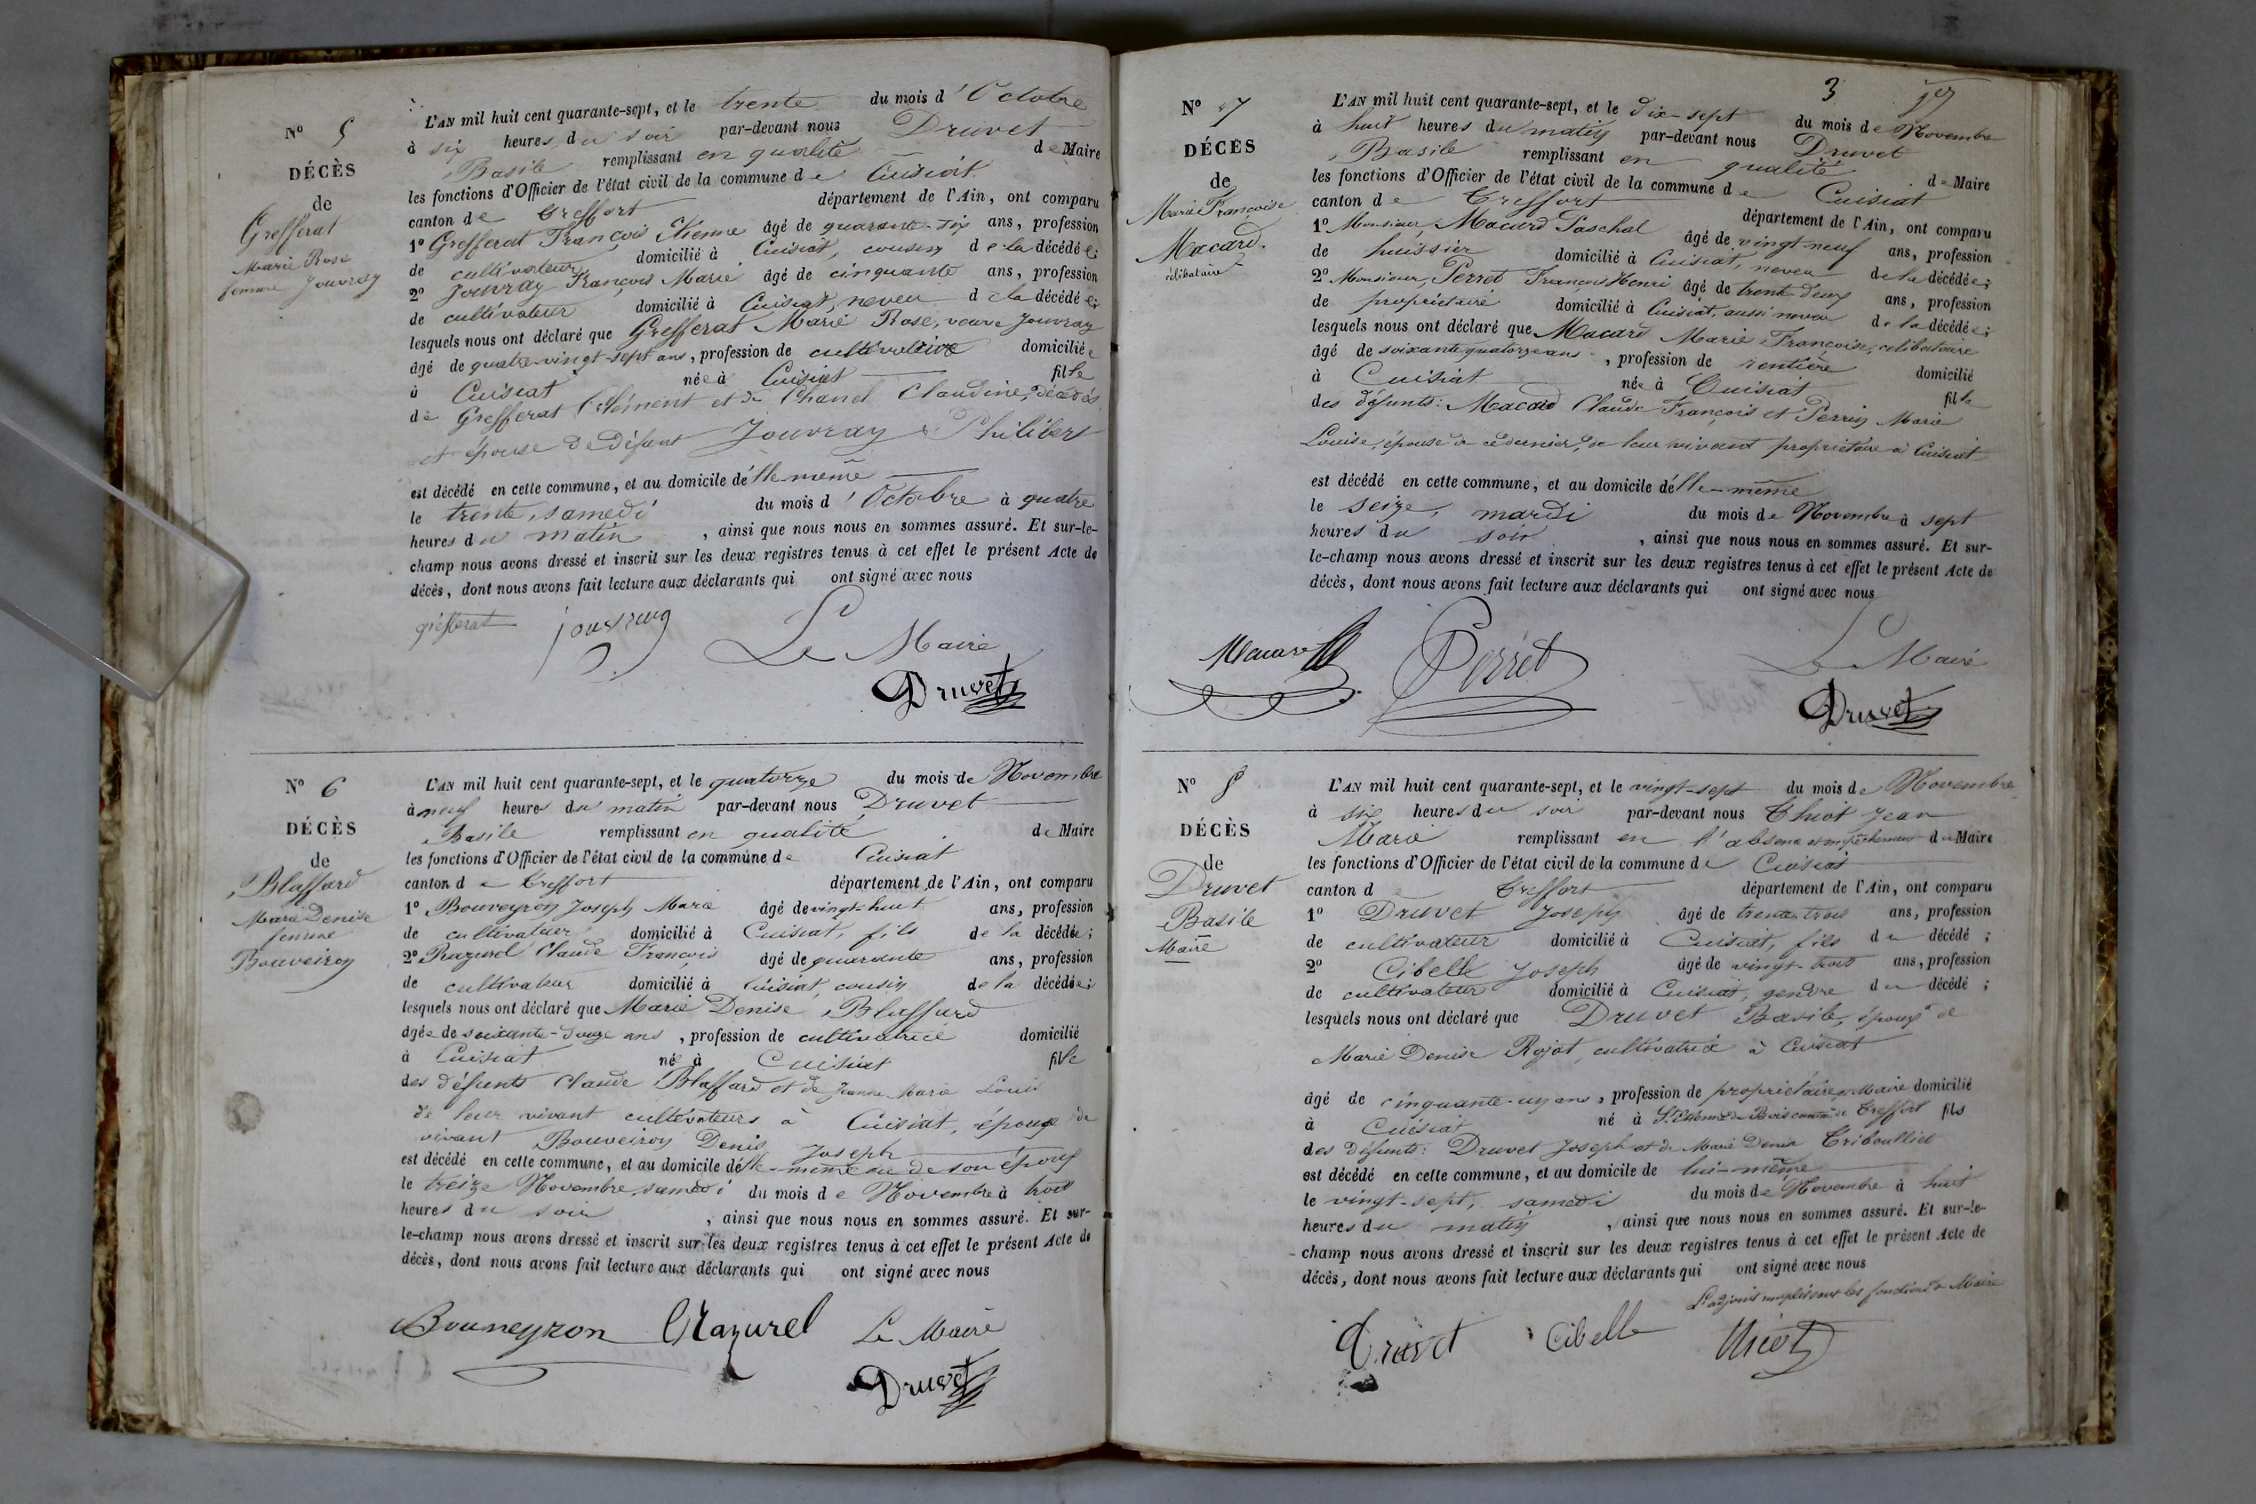 N° 5
DÉCÈS
de
Grefferat
Marie Rose
femme Jouvray
L'AN mil huit cent quarante-sept, et le trente du mois d'Octobre
à six heures du soir par-devant nous Druvet
Basile remplissant en qualité de Maire
les fonctions d'Officier de l'état civil de la commune de Cuisiat
canton de Treffort département de l'Ain, ont comparu
1° Grefferat François Etienne âgé de quarante-six ans, profession
de cultivateur domicilié à Cuisiat, cousin de la décédée;
2° Jouvray François Marie âgé de cinquante ans, profession
de cultivateur domicilié à Cuisiat, neveu de la décédée;
lesquels nous ont déclaré que Grefferat Marie Rose, veuve Jouvray
âgé de quatre-vingt-sept ans, profession de cultivatrice domiciliée
à Cuisiat née à Cuisiat fille
de Grefferat Clément et de Chanel Claudine, décédés
et épouse de défunt Jouvray Philibert
est décédé en cette commune, et au domicile d'elle-même
le trente, samedi du mois d'Octobre à quatre
heures du matin, ainsi que nous nous en sommes assuré. Et sur-le-
champ nous avons dressé et inscrit sur les deux registres tenus à cet effet le présent Acte de
décès, dont nous avons fait lecture aux déclarants qui ont signé avec nous
grefferat jouvray Le Maire
Druvet
N° 6
DÉCÈS
de
Blaffard
Marie Denise
femme
Bouveiron
L'AN mil huit cent quarante-sept, et le quatorze du mois de Novembre
à neuf heures du matin par-devant nous Druvet
Basile remplissant en qualité de Maire
les fonctions d'Officier de l'état civil de la commune de Cuisiat
canton de Treffort département de l'Ain, ont comparu
1° Bouveyron Joseph Marie âgé de vingt-huit ans, profession
de cultivateur domicilié à Cuisiat, fils de la décédée;
2° Razurel Claude François âgé de quarante ans, profession
de cultivateur domicilié à Cuisiat, cousin de la décédée;
lesquels nous ont déclaré que Marie Denise Blaffard
âgée de soixante-douze ans, profession de cultivatrice domicilié
à Cuisiat née à Cuisiat fille
des défunts Claude Blaffard et de Jeanne Marie Louis
de leur vivant cultivateurs à Cuisiat, épouse de
vivant Bouveiron Denis Joseph
est décédé en cette commune, et au domicile d'elle-même ou de son époux
le treize Novembre, samedi du mois de Novembre à trois
heures du soir, ainsi que nous nous en sommes assuré. Et sur-
le-champ nous avons dressé et inscrit sur les deux registres tenus à cet effet le présent Acte de
décès, dont nous avons fait lecture aux déclarants qui ont signé avec nous
Bouveyron Razurel Le Maire
Druvet
3
N° 7
DÉCÈS
de
Marie Françoise
Macard.
célibataire
L'AN mil huit cent quarante-sept, et le dix-sept du mois de Novembre
à huit heures du matin par-devant nous Druvet
Basile remplissant en qualité de Maire
les fonctions d'Officier de l'état civil de la commune de Cuisiat
canton de Treffort département de l'Ain, ont comparu
1° Monsieur, Macard Paschal âgé de vingt-neuf ans, profession
de huissier domicilié à Cuisiat, neveu de la décédée;
2° Monsieur, Perret François Henri âgé de trente-deux ans, profession
de propriétaire domicilié à Cuisiat, aussi neveu de la décédée;
lesquels nous ont déclaré que Macard Marie Françoise, célibataire
âgé de soixante quatorze ans, profession de rentière domicilié
à Cuisiat née à Cuisiat fille
des défunts: Macard Claude François et Perrin Marie
Louise, épouse à ce dernier, de leur vivant propriétaire à Cuisiat
est décédé en cette commune, et au domicile d'elle-même
le seize, mardi du mois de Novembre à sept
heures du soir, ainsi que nous nous en sommes assuré. Et sur-
le-champ nous avons dressé et inscrit sur les deux registres tenus à cet effet le présent Acte de
décès, dont nous avons fait lecture aux déclarants qui ont signé avec nous
Macard Perret Le Maire
Druvet
N° 8
DÉCÈS
de
Druvet
Basile
Maire
L'AN mil huit cent quarante-sept, et le vingt-sept du mois de Novembre
à six heures du soir par-devant nous Thiot Jean
Marie remplissant en l'absence et empêchement du Maire
les fonctions d'Officier de l'état civil de la commune de Cuisiat
canton de Treffort département de l'Ain, ont comparu
1° Druvet Joseph âgé de trente-trois ans, profession
de cultivateur domicilié à Cuisiat, fils du décédé;
2° Cibelle Joseph âgé de vingt-trois ans, profession
de cultivateur domicilié à Cuisiat, gendre du décédé;
lesquels nous ont déclaré que Druvet Basile, époux de
Marie Denise Rojat, cultivatrice à Cuisiat
âgé de cinquante-un ans, profession de propriétaire, Maire domicilié
à Cuisiat né à St. Etienne du Bois canton de Treffort fils
des défunts: Druvet Joseph et de Marie Denise Triboulliet
est décédé en cette commune, et au domicile de lui-même
le vingt-sept, samedi du mois de Novembre à huit
heures du matin, ainsi que nous nous en sommes assuré. Et sur-le-
champ nous avons dressé et inscrit sur les deux registres tenus à cet effet le présent Acte de
décès, dont nous avons fait lecture aux déclarants qui ont signé avec nous
L'adjoint remplissant les fonctions de Maire
Druvet Cibelle Thiot